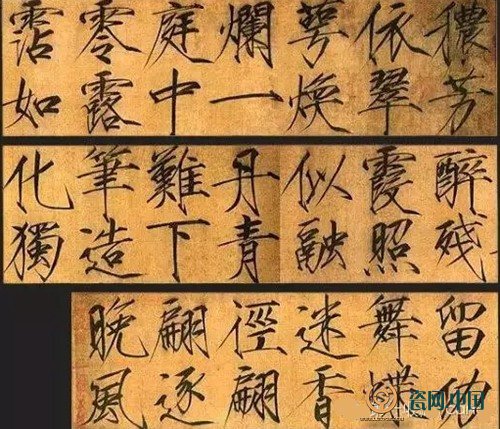 穠芳
依翠
萼煥
爛一
庭中
零露
霑如
醉残
霞照
似融
丹青
難下
筆造
化獨
留功
舞蝶
迷香
徑翩
翩逐
晚風
瓷网中国